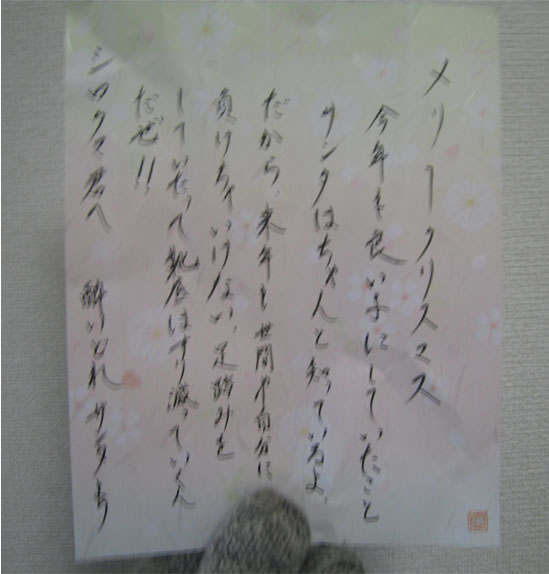 メリークリスマス
今年も良い子にしていたこと
サンタはちゃんと知っているよ。
だから、来年も世間や自分に
負けちゃいけない、足踏みを
していたって靴底はすり減っていくん
だぜ!!
シロクマ君へ 酔いどれサンタより